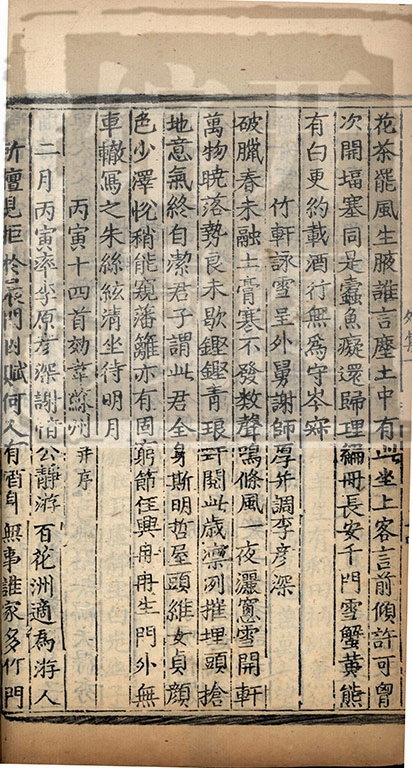 花茶罷風生腋誰言塵土中有此坐上客言前傾許可曾
次開堛塞同是蠹魚癡還歸理編冊長安千門雪蟹黃熊
有白更約載酒行無為守岑寂
竹軒詠雪呈外舅謝師厚并調李彥深
破臘春未融土膏寒不發數聲鳴條風一夜灑窓雪開軒
萬物曉落勢良未歇鏗鏗青琅玕閱此歲凜冽摧埋頭搶
地意氣終自潔君子謂此君全身斯明哲屋頭維女貞顏
色少澤恱稍能窺藩籬亦有固窮節任興冉冉生門外無
車轍寫之朱絲絃清坐待明月
丙寅十四首効韋蘇州 并序
二月丙寅率李原彥深謝愔公靜游百花洲適為游人
所
亶見拒於晨門因賦何人有酒身無事誰家多竹門